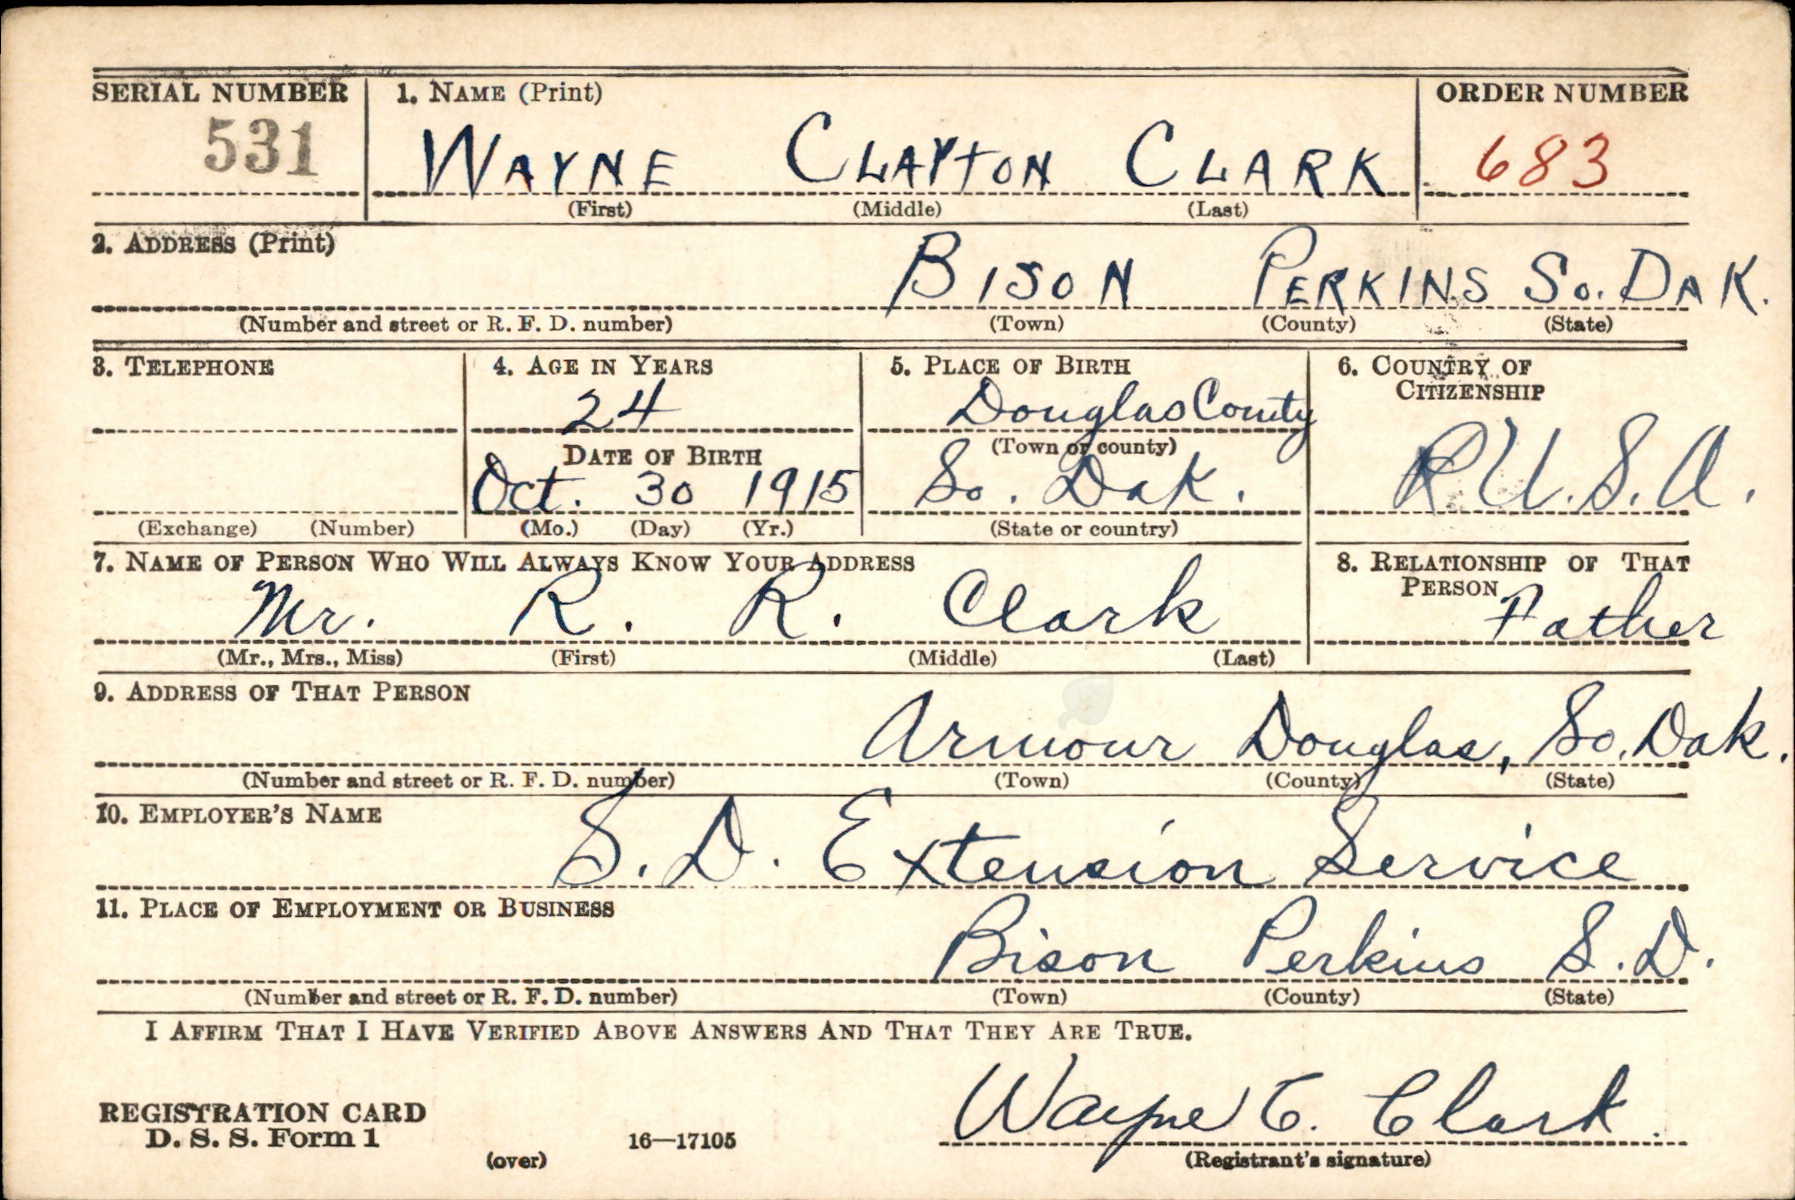 SERIAL NUMBER 1. NAME (Print) ORDER NUMBER
531 WAYNE CLAYTON CLARK 683
(First) (Middle) (Last)
2. ADDRESS (Print)
BISON PERKINS SO. DAK.
(Number and street or R. F. D. number) (Town) (County) (State)
3. TELEPHONE 4. AGE IN YEARS 5. PLACE OF BIRTH 6. COUNTRY OF
CITIZENSHIP
24 Douglas County
DATE OF BIRTH (Town or county)
Oct. 30 1915 So. Dak. U.S.A.
(Exchange) (Number) (Mo.) (Day) (Yr.) (State or country)
7. NAME OF PERSON WHO WILL ALWAYS KNOW YOUR ADDRESS 8. RELATIONSHIP OF THAT
PERSON
Mr. R. R. Clark Father
(Mr., Mrs., Miss) (First) (Middle) (Last)
9. ADDRESS OF THAT PERSON
Armour Douglas, So. Dak.
(Number and street or R. F. D. number) (Town) (County) (State)
10. EMPLOYER'S NAME
S. D. Extension Service
11. PLACE OF EMPLOYMENT OR BUSINESS
Bison Perkins S. D.
(Number and street or R. F. D. number) (Town) (County) (State)
I AFFIRM THAT I HAVE VERIFIED ABOVE ANSWERS AND THAT THEY ARE TRUE.
Wayne C. Clark
REGISTRATION CARD
D. S. S. Form 1 16—17105
(over) (Registrant's signature)